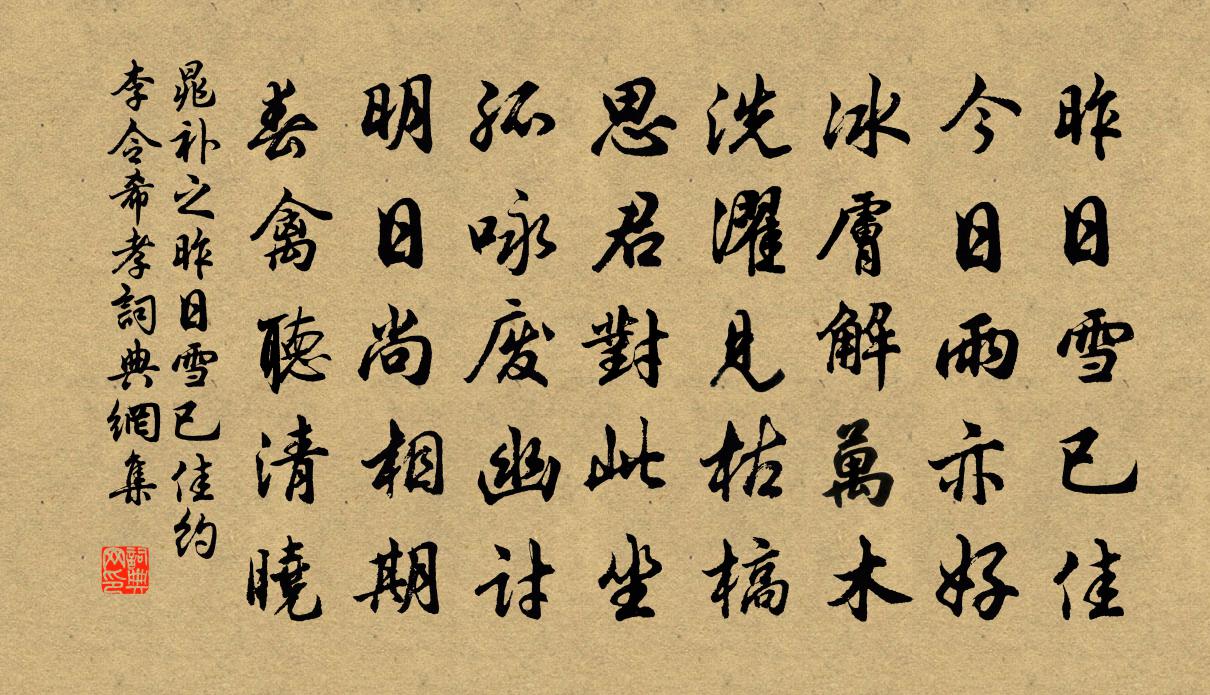 昨日雪已佳
今日雨亦好
冰膚解萬木
洗濯見枯槁
思君對此坐
孤咏废幽討
明日尚相期
春禽聽清曉
晁补之昨日雪已佳约
李令希孝詞典網集
詞典网印